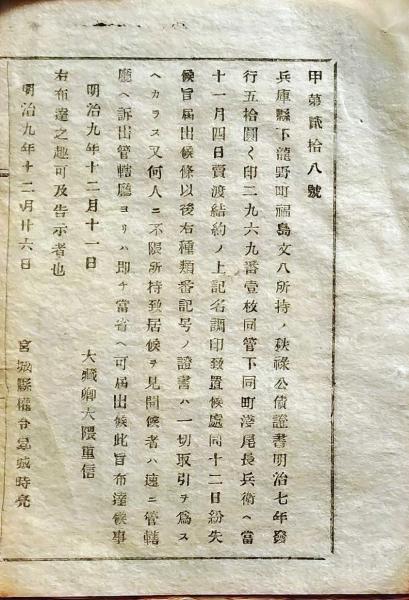 甲第貳拾八號
兵庫縣下龍野町福島文八所持ノ秩祿公債證書明治七年發
行五拾圓く印二九六九番壹枚同管下同町淺尾長兵衛ヘ當
十一月四日賣渡結約ノ上記名調印致置候處同十二日紛失
候旨屆出候條以後右種類番記号ノ證書ハ一切取引ヲ爲ス
ヘカラス又何人ニ不限所持致居候ヲ見聞候者ハ速ニ管轄
廳ヘ訴出管轄廳ヨリハ即チ當省ヘ可屆出候此旨布達候事
明治九年十二月十一日
大藏卿大隈重信
右布達之趣可及告示者也
明治九年十二月廿六日
宮城縣權令宮城時亮